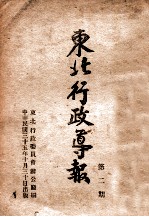 東北行政導報
第二期
東北行政委員會辦公廳編
中華民國三十五年十月三十日出版